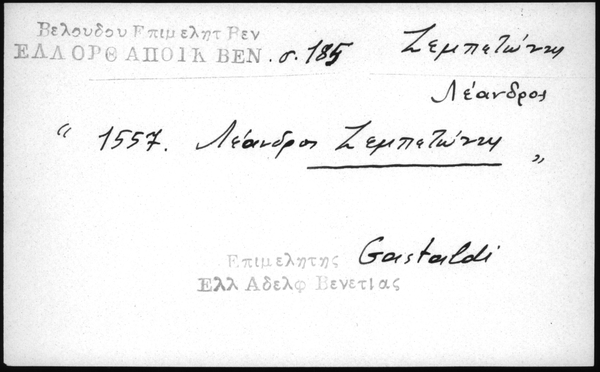 Βελουδου Επιμελητ Βεν
ΕΛΛ ΟΡΘ ΑΠΟΙΚ ΒΕΝ. σ. 185 Ζεμπετώνης
Λέανδρος
“ 1557. Λέανδρος Ζεμπετώνης „
Επιμελητης Gastaldi
Ελλ Αδελφ Βενετίας